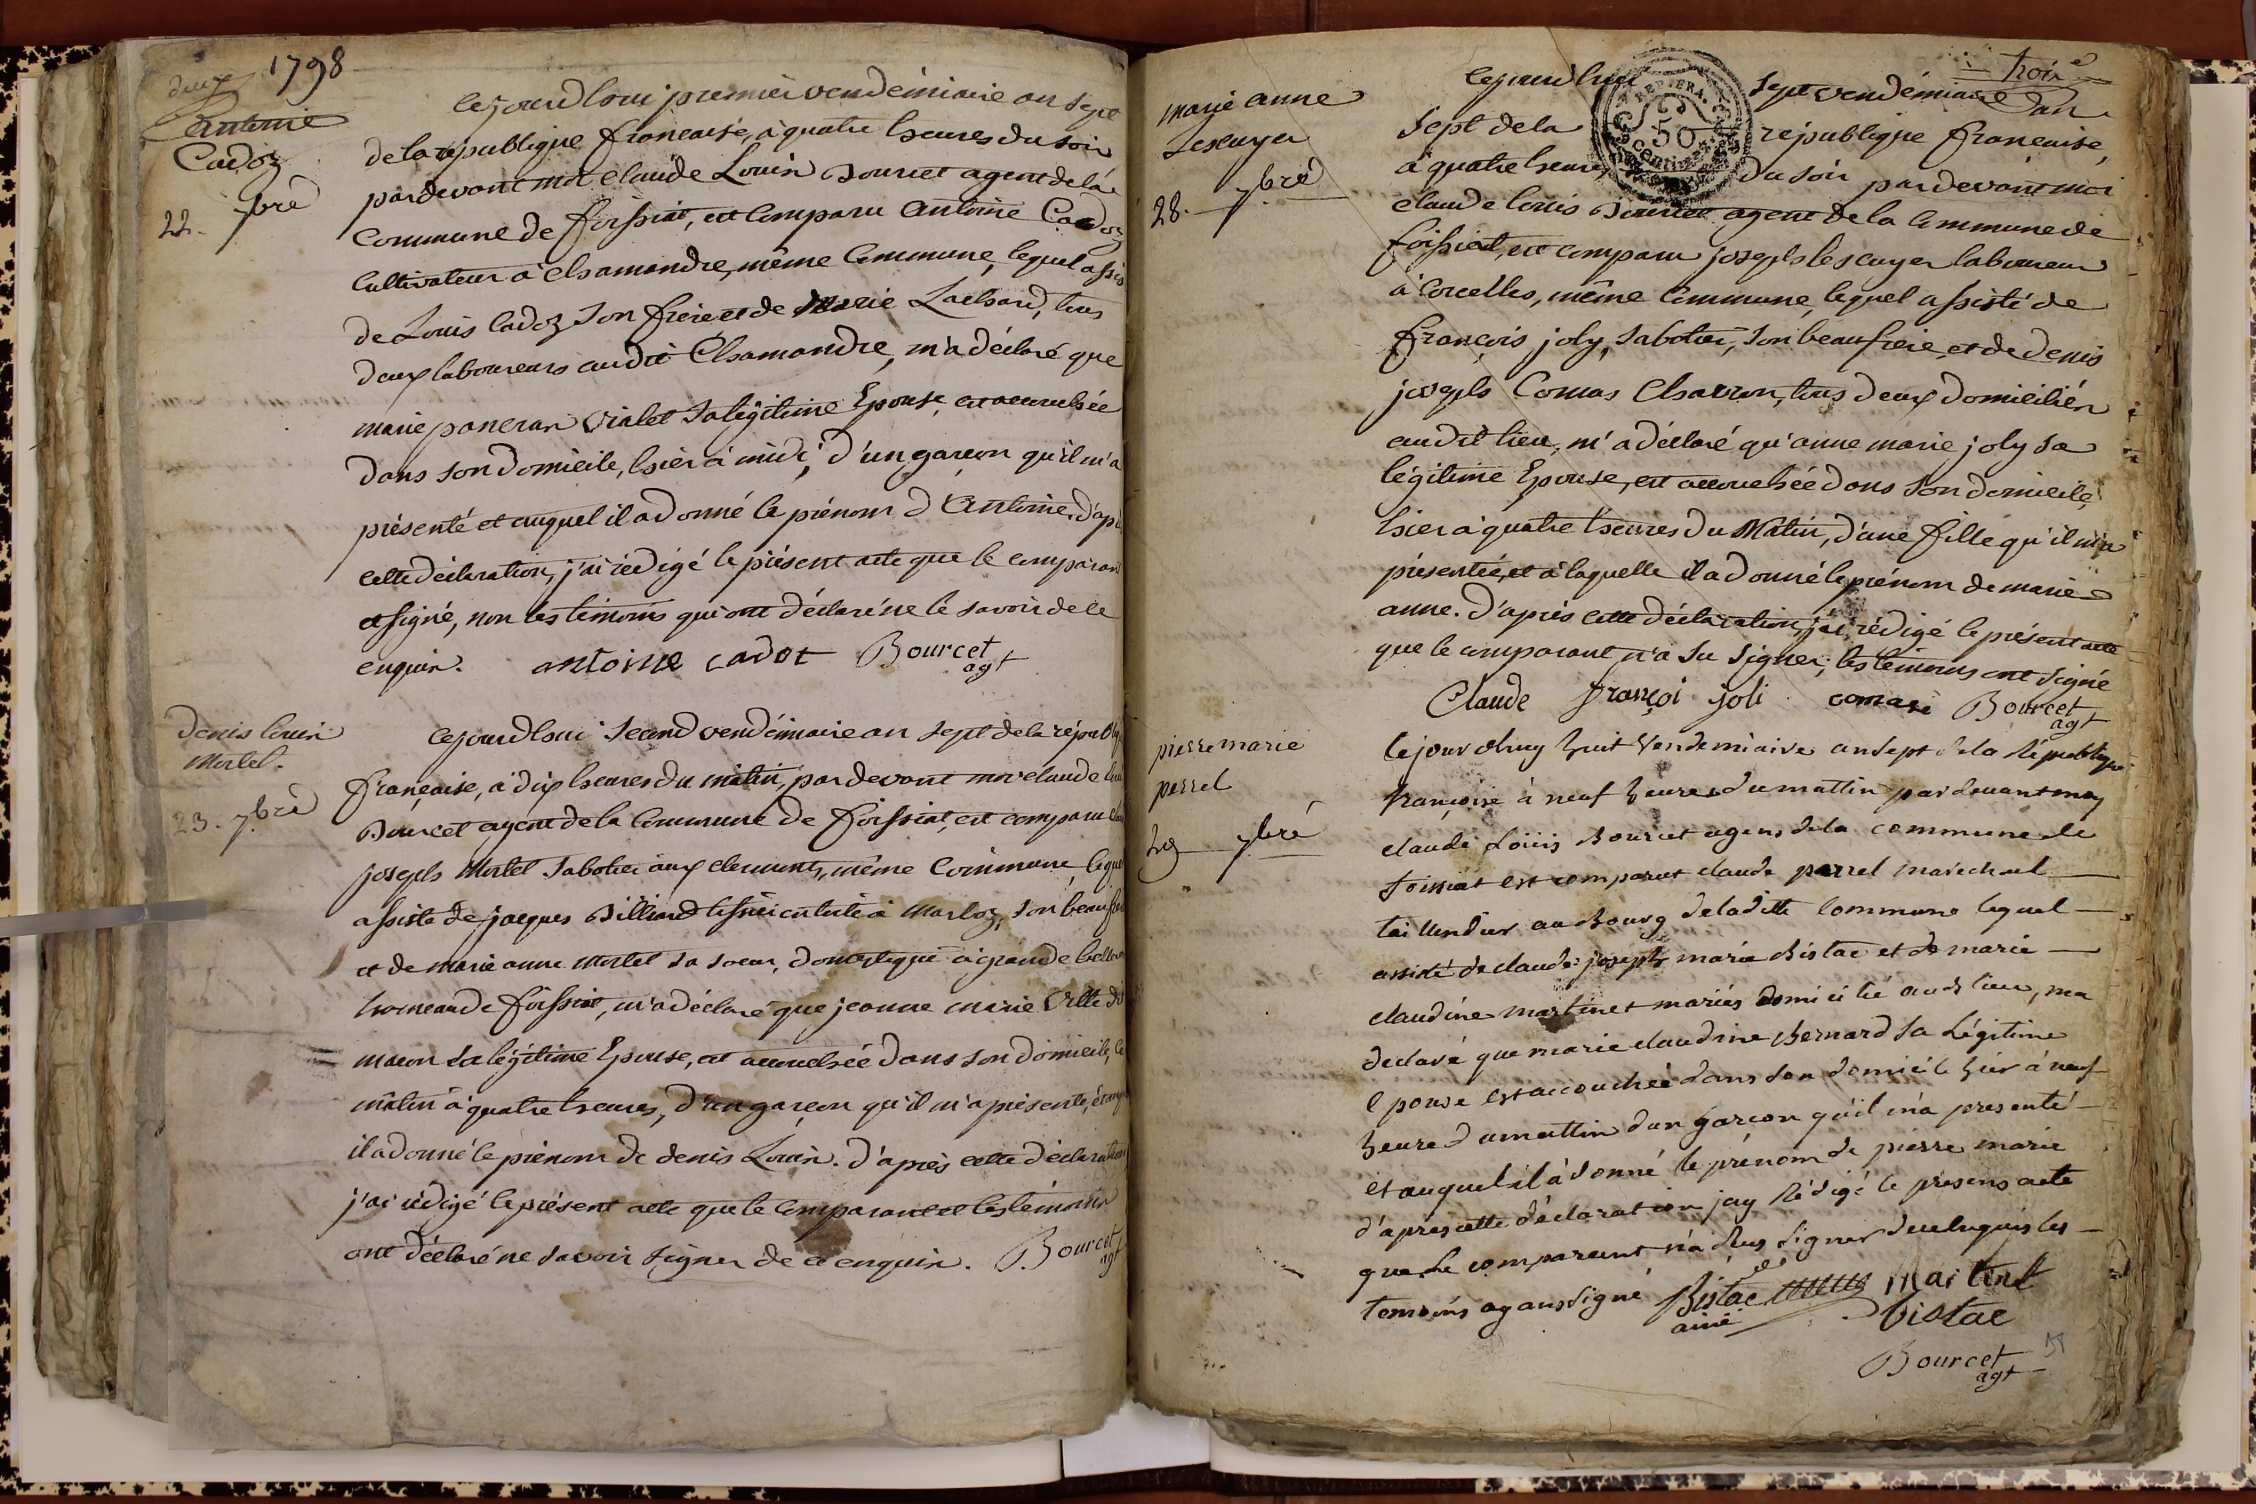 deux
1798
antoine
Cadoz
22. 7bre
Cejourdhui premier vendémiaire an sept
de la république francaise, à quatre heures du soir
pardevant moi claude Louis Bourcet agent de la
Commune de foissiat, est Comparu Antoine Cadoz
Cultivateur à Chamandre, même Commune, lequel assis
de Louis Cadoz son frère et de Marie Lachard, tous
deux laboureurs audit Chamandre, m'a déclaré que
marie vialet sa légitime Epouse, est accouchée
dans son domicile, hier à midi, d'un garçon qu'il m'a
présenté et auquel il a donné le prénom d'Antoine. d'apr
cette déclaration, j'ai rédigé le présent acte que le comparant
a signé, non les témoins qui ont déclaré ne le savoir de ce
enquis. antoine cadot Bourcet
agt
denis louis
Mortel.
23. 7bre
Cejourdhui second vendémiaire an sept de la républi
française, à dix heures du matin, pardevant moi claude
Bourcet agent de la Commune de foissiat, est comparu
joseph Mortel sabotier aux clermonts, même Commune, lequ
assisté de jacques Billiard à Marboz, son beaufr
et de marie anne Mortel sa soeur, domestique à
hameau de foissiat, m'a déclaré que jeanne marie
macon sa légitime Epouse, est accouchée dans son domicile, ce
matin à quatre heures, d'un garçon qu'il m'a présenté, et auq
il a donné le prénom de denis Louis. d'après cette déclaration
j'ai rédigé le présent acte que le comparant et les témoins
ont déclaré ne savoir signer de ce enquis. Bourcet
agt
trois
marie anne
Lescuyer
28. 7bre
Cejourdhui sept vendémiaire l'an
sept de la république française,
à quatre heures du soir pardevant moi
claude louis Bourcet agent de la Commune de
foissiat, est comparu joseph lescuyer laboureur
à Corcelles, même Commune, lequel assisté de
françois joly, sabotier, son beaufrère, et de denis
joseph Comas Charron, tous deux domiciliés
audit lieu, m'a déclaré qu'anne marie joly sa
légitime Epouse, est accouchée dans son domicile,
hier à quatre heures du Matin, d'une fille qu'il m'a
présentée, et à laquelle il a donné le prénom de marie
anne. d'après cette déclaration, j'ai rédigé le présent acte
que le comparant n'a su signer; les témoins ont signé
Claude françoi joli comas Bourcet
agt
pierre marie
perrel
29 7bre
Cejourdhuy huit Vendemiaire an sept de la République
françoise à neuf heures du mattin pardevant moy
claude Loüis Bourcet agens de la commune de
foissiat est comparut claude perrel marechal
taillendier au Bourg de la ditte Commune lequel
assisté de claude joseph marie Bistac et de marie
claudine martinet mariés domicilié audt lieu, ma
declaré que marie claudine Bernard sa Légitime
Epouse est accouchée dans son domicile hier à neuf
heure du mattin d'un garcon qu'il m'a presenté
et auquel il à donné le prénom de pierre marie
d'apres cette déclaration jay Rédigé le présens acte
que le comparrant n'a sus signer de ce enquis les
temoins ayans signé Bistac Martinet
ainé Bistac
Bourcet
agt